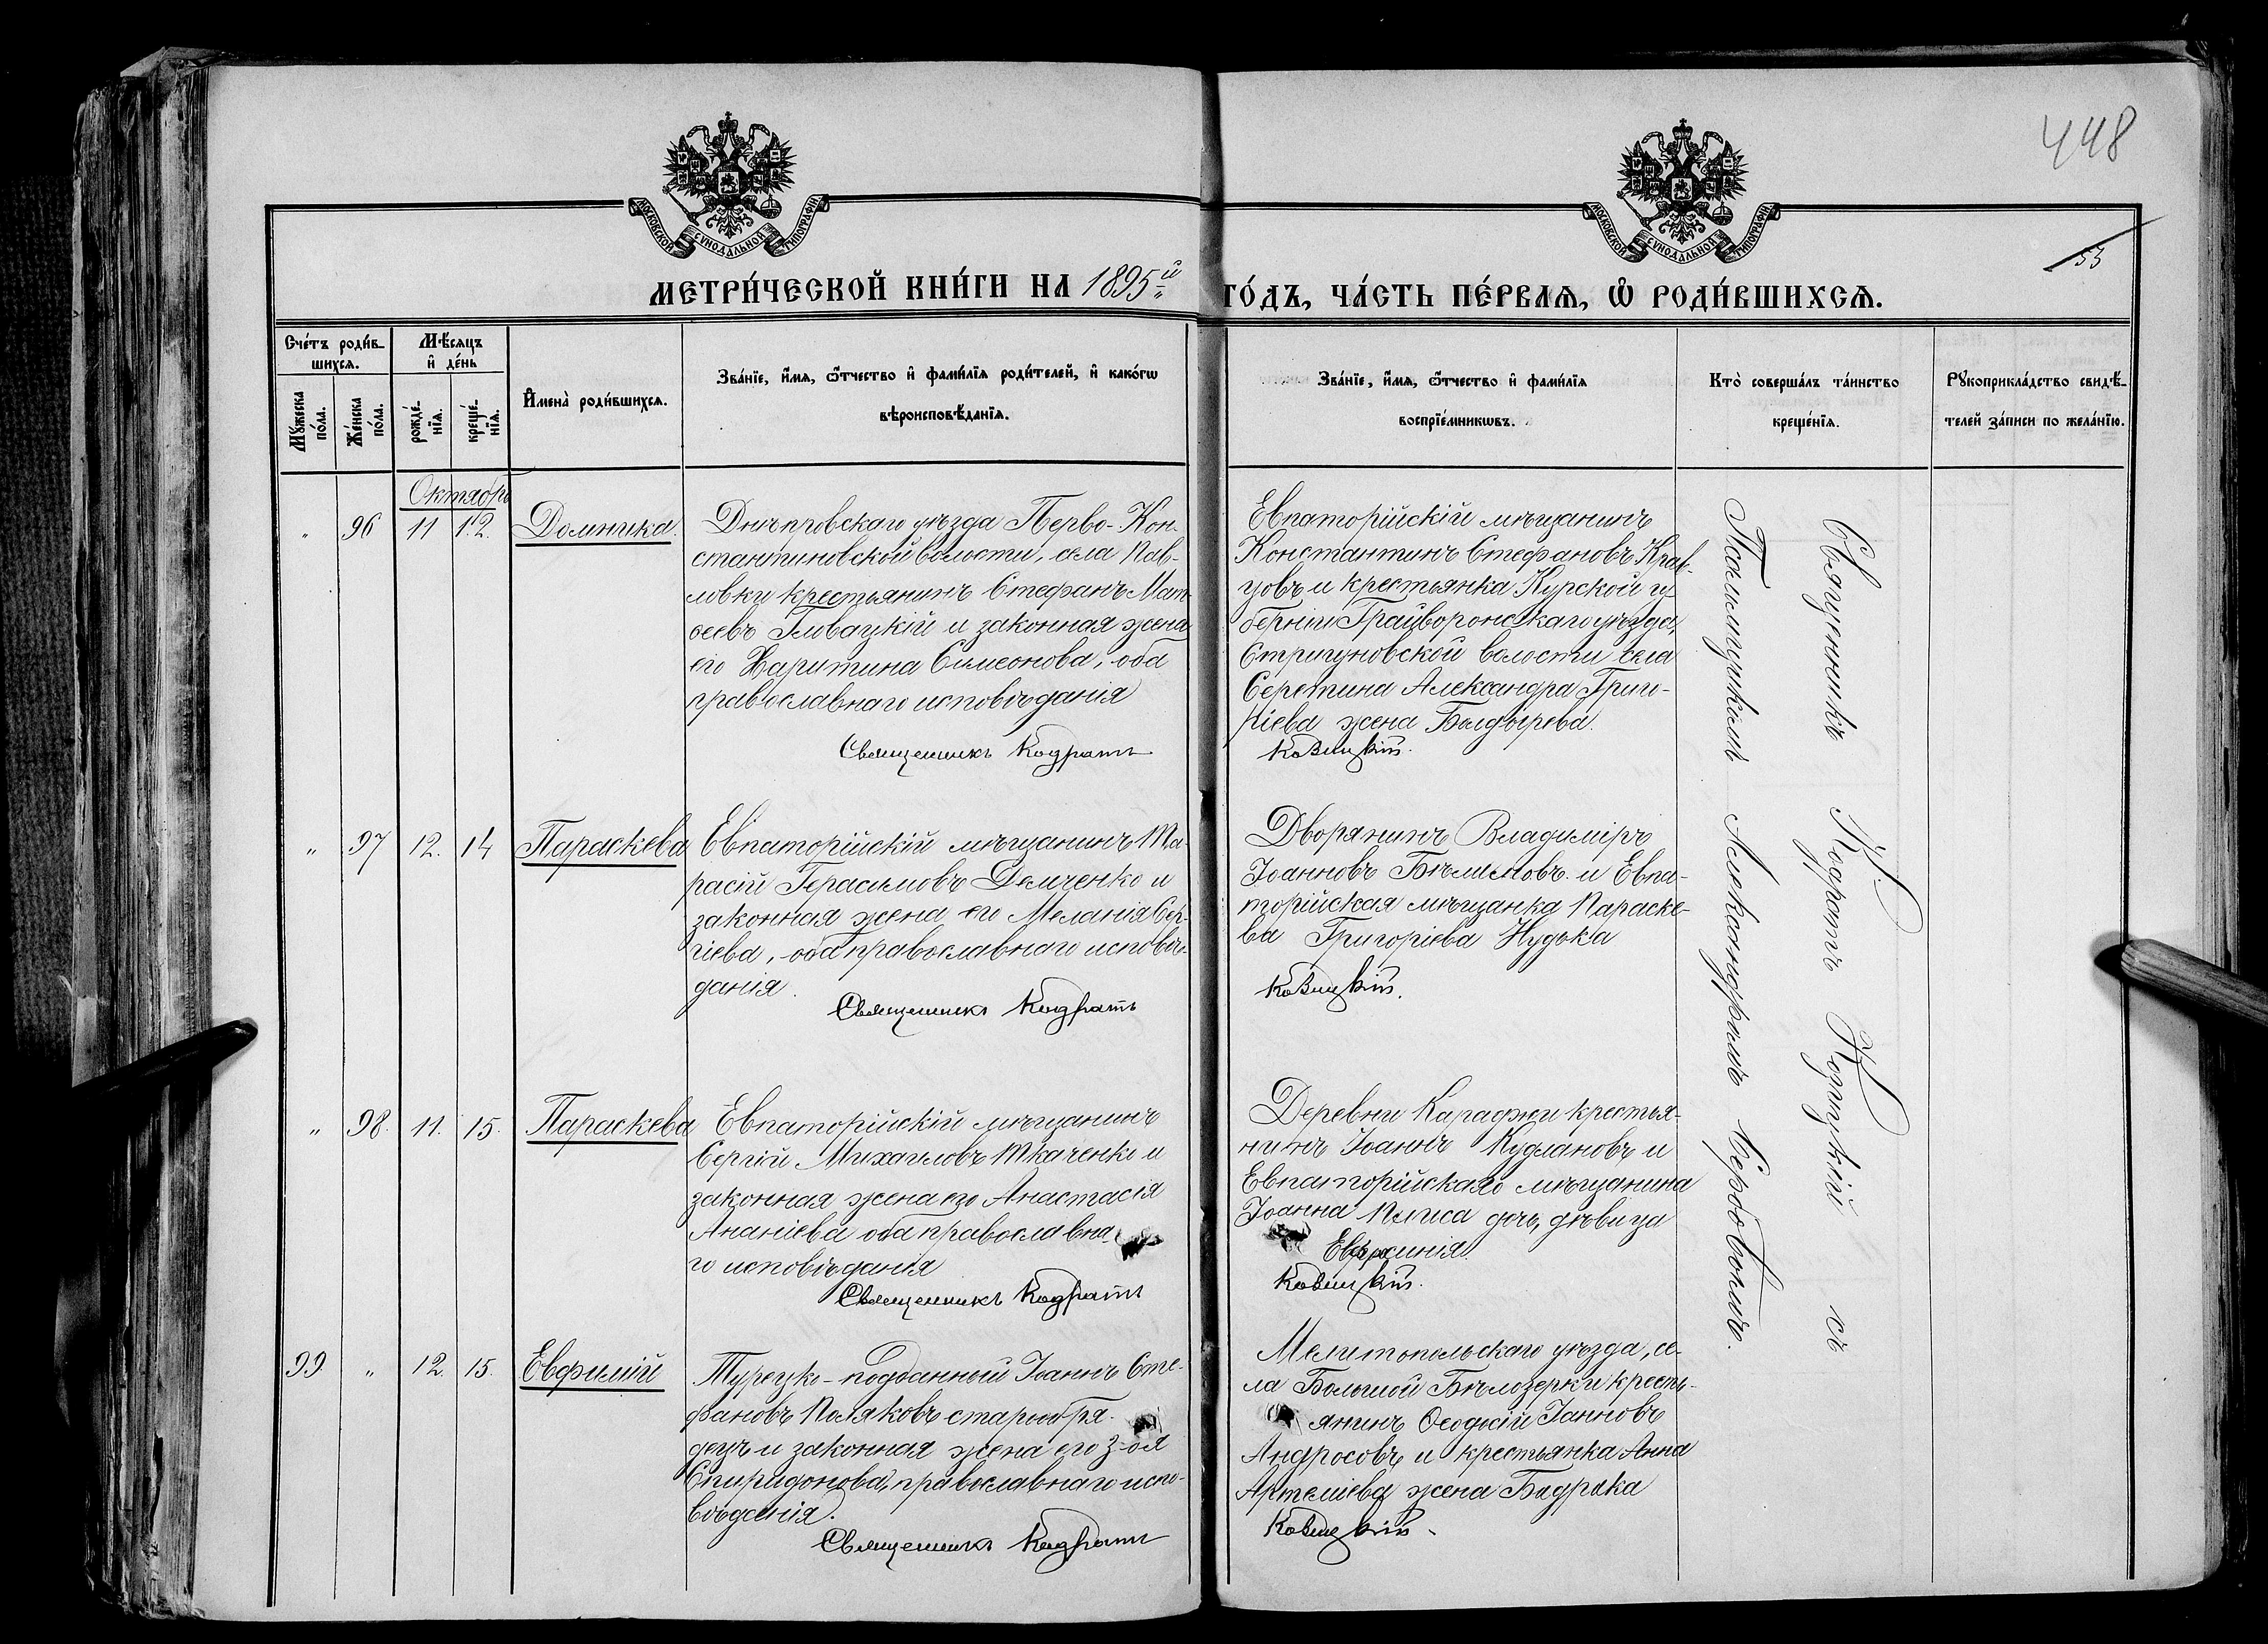 448
МОСКОВСКОЙ СѴНОДАЛЬНОЙ ТИПОГРАФІИ
МОСКОВСКОЙ СѴНОДАЛЬНОЙ ТИПОГРАФІИ
53
МЕТРИ́ЧЕСКОЙ КНИ́ГИ НА 1895й
ГО́ДЪ, ЧА́СТЬ ПЕ́РВАѦ, Ѡ҆ РОДИ́ВШИХСѦ.
Сче́тъ роди́в-
шихсѧ.
Мѣ́сѧцъ
и҆ де́нь
Мꙋ́жеска
по́ла.
Же́нска
по́ла.
рожде́-
нїѧ.
креще́-
нїѧ.
И҆мена̀ роди́вшихсѧ.
Зва́нїе, и҆́мѧ, ѻ҆́тчество и҆ фами́лїѧ роди́телей, и҆ како́гѡ
вѣроисповѣ́данїѧ.
Зва́нїе, и҆́мѧ, ѻ҆́тчество и҆ фами́лїѧ
воспрїе́мникѡвъ.
Кто̀ соверша́лъ та́инство
креще́нїѧ.
Рꙋкоприкла́дство свидѣ́-
телей за́писи по жела́нїю.
Октябрь
" 96 11 12. Домника.
Днѣпровскаго уѣзда Перво-Кон-
стантиновской волости, села Пав-
ловки крестьянинъ Стефанъ Мат-
ѳеевъ Гловацкій и законная жена
его Харитина Симеонова, оба
православнаго исповѣданія
Священникъ Кодратъ
Евпаторійскій мѣщанинъ
Константинъ Стефановъ Крав-
цовъ и крестьянка Курской гу
берніи Грайворонскаго уѣзда,
Стригуновской волости села
Серетина Александра Григо-
ріева жена Болдырева.
Козицкій.
" 97 12. 14 Параскева
Евпаторійскій мѣщанинъ Та-
расій Герасимовъ Демченко и
законная жена его Меланія Сер-
гіева, оба православнаго исповѣ-
данія.
Священникъ Кодратъ
Дворянинъ Владиміръ
Іоанновъ Бѣлимовъ и Евпа-
торійская мѣщанка Параске-
ва Григоріева Нудька
Козицкій.
" 98. 11. 15. Параскева
Евпаторійскій мѣщанинъ
Сергій Михаиловъ Ткаченко и
законная жена его Анастасія
Ананіева оба православна-
го исповѣданія
Священникъ Кодратъ
Деревни Караджи крестья-
нинъ Іоаннъ Кудлановъ и
Евпаторійскаго мѣщанина
Іоанна дочь, дѣвица
Козицкій.
99 " 12. 15. Евфимій
Турецко-подданный Іоаннъ Сте-
фановъ Поляковъ старообря-
децъ и законная жена его Зоя
Спиридонова, православнаго испо-
вѣданія.
Священникъ Кодратъ
Мелитопольскаго уѣзда, се-
ла Большой Бѣлозерки кресть-
янинъ Ѳеодосій Іанновъ
Андросовъ и крестьянка Анна
Артеміева жена Бадрака
Козицкій.
Священникъ Кодратъ Козицкій съ
Псаломщикомъ Александромъ Сербовымъ.